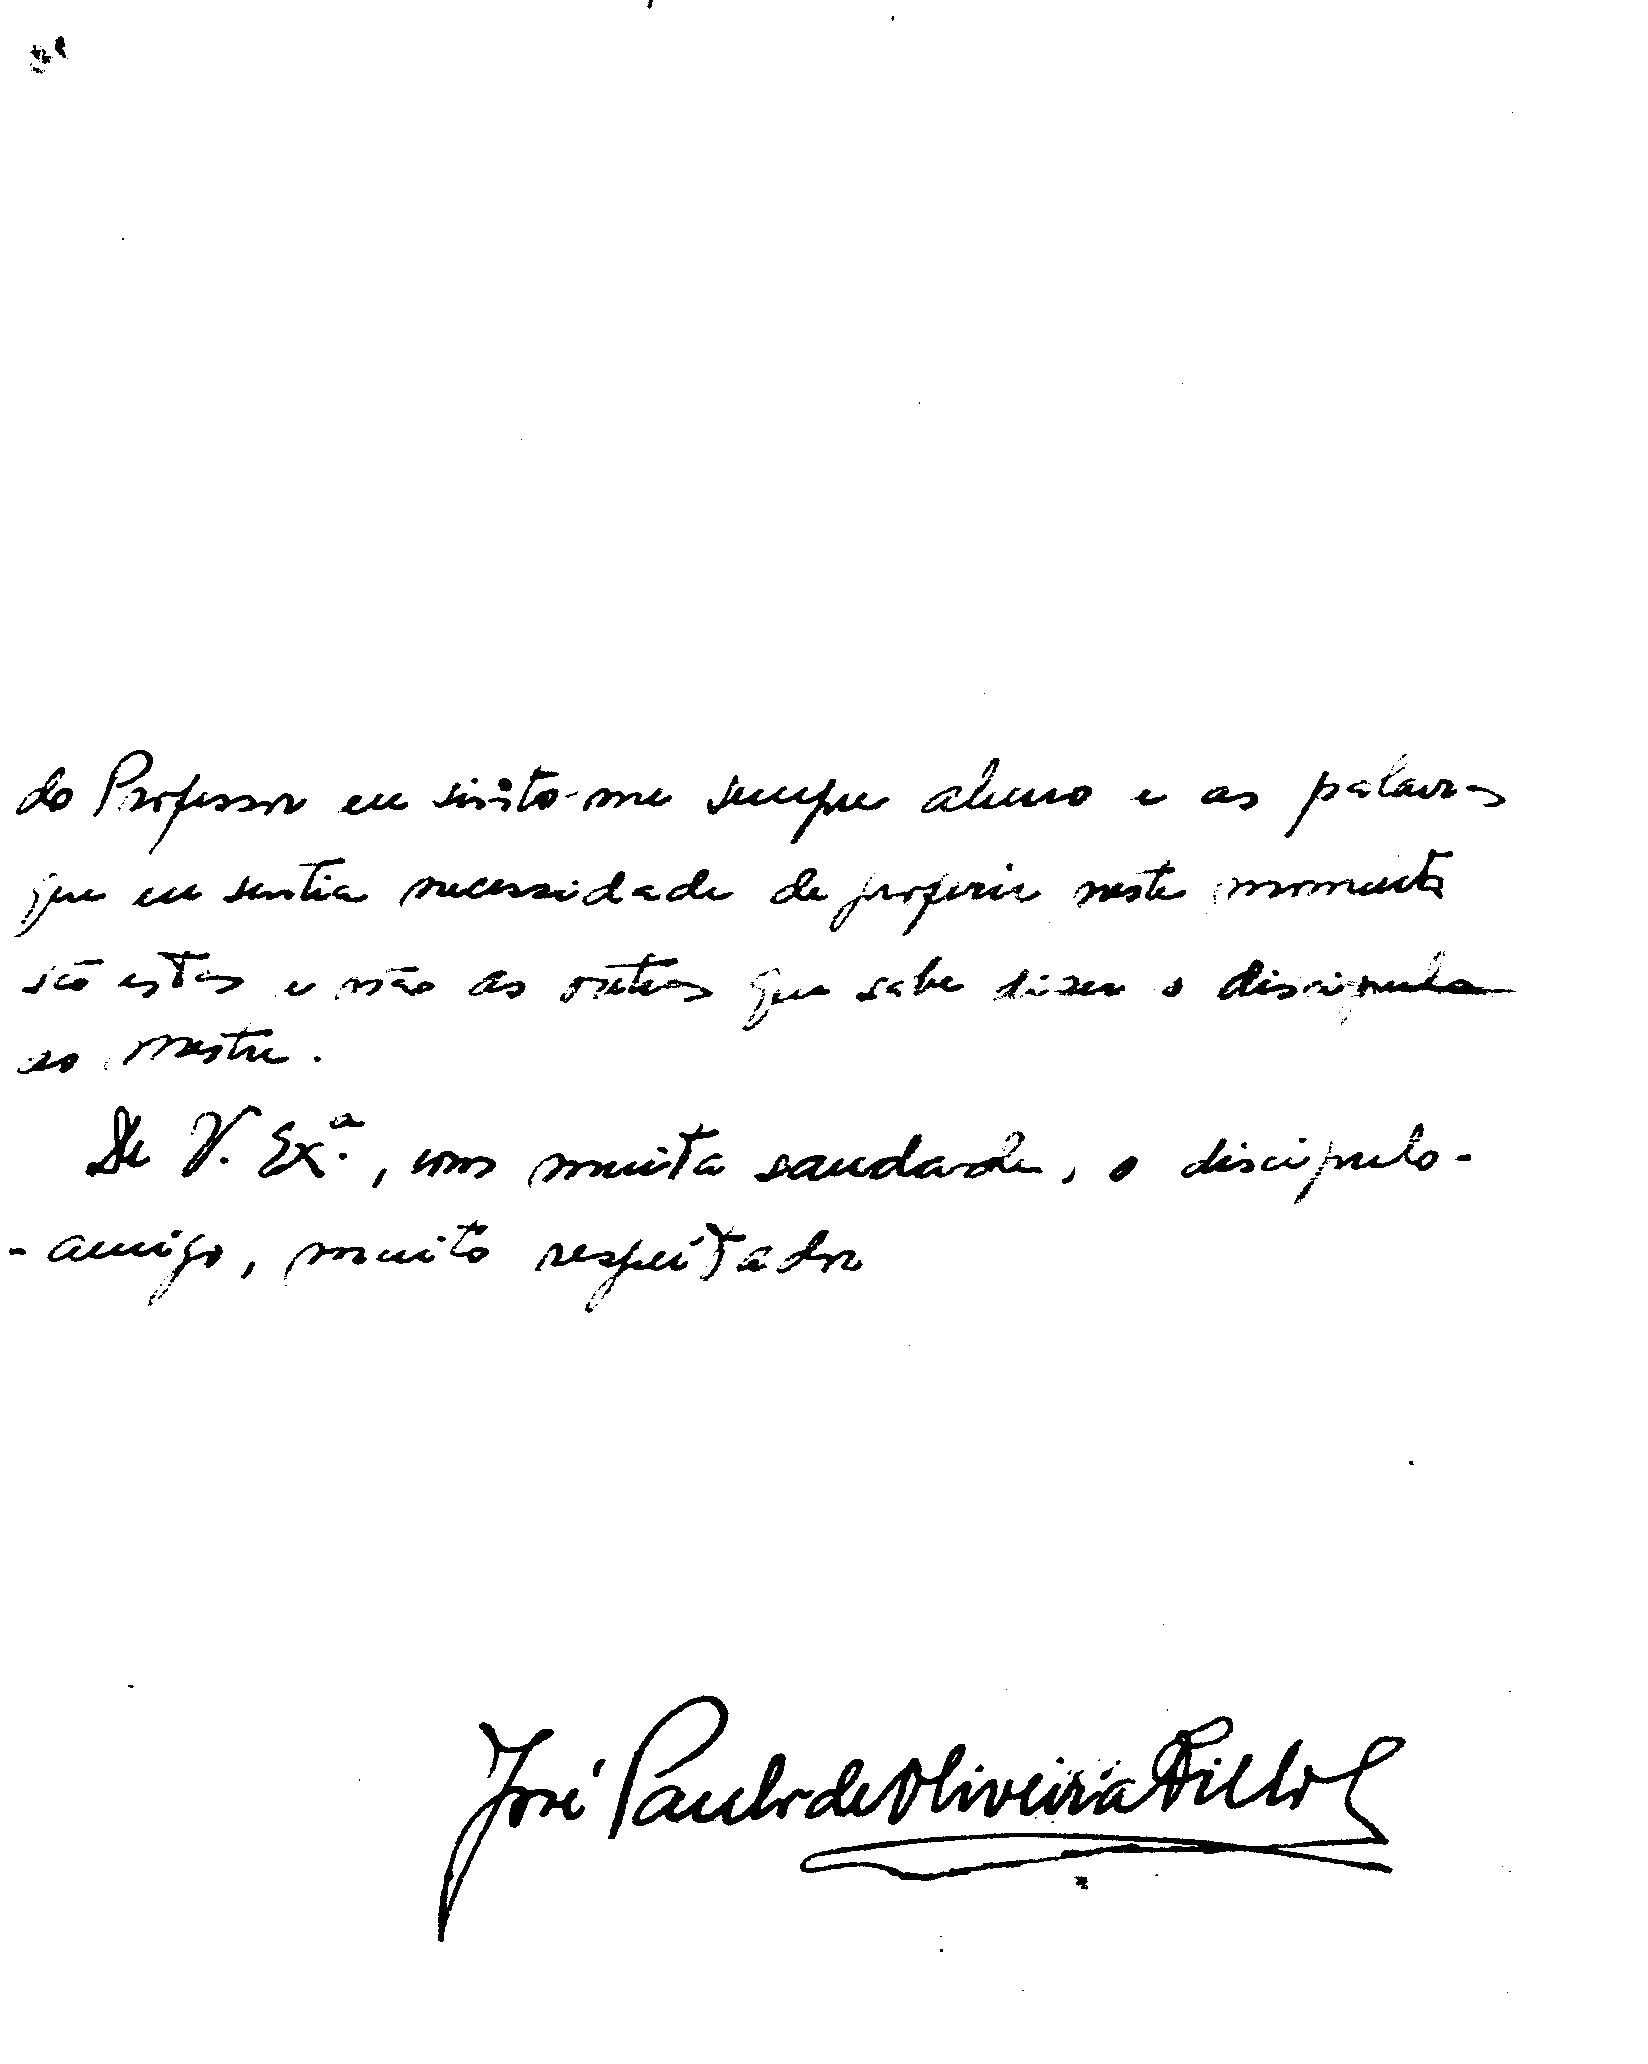 do Professor eu sinto-me sempre aluno e as palavras
que eu sentia necessidade de proferir neste momento
são estas e não as outras que sabe dizer o discipulo
ao Mestre.
De V. Ex.ª, com muita saudade, o discipulo-
-amigo, muito respeitador
José Paulo de Oliveira